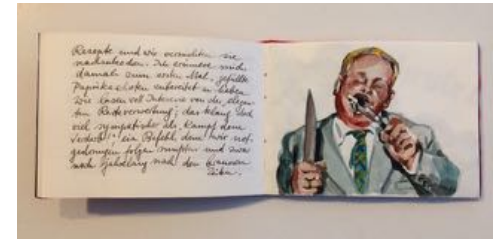 Rezepte und wir versuchten sie
nachzukochen. Ich erinnere mich
damals zum ersten Mal, gefüllte
Paprikaschoten zubereitet zu haben.
Wir lasen voll Interesse von der elegan-
ten Resteverwertung; das klang doch
viel sympathischer als "Kampf dem
Verderb!", ein Befehl, dem wir not-
gedrungen folgen mussten und zwar
noch jahrelang nach den braunen
Zeiten.